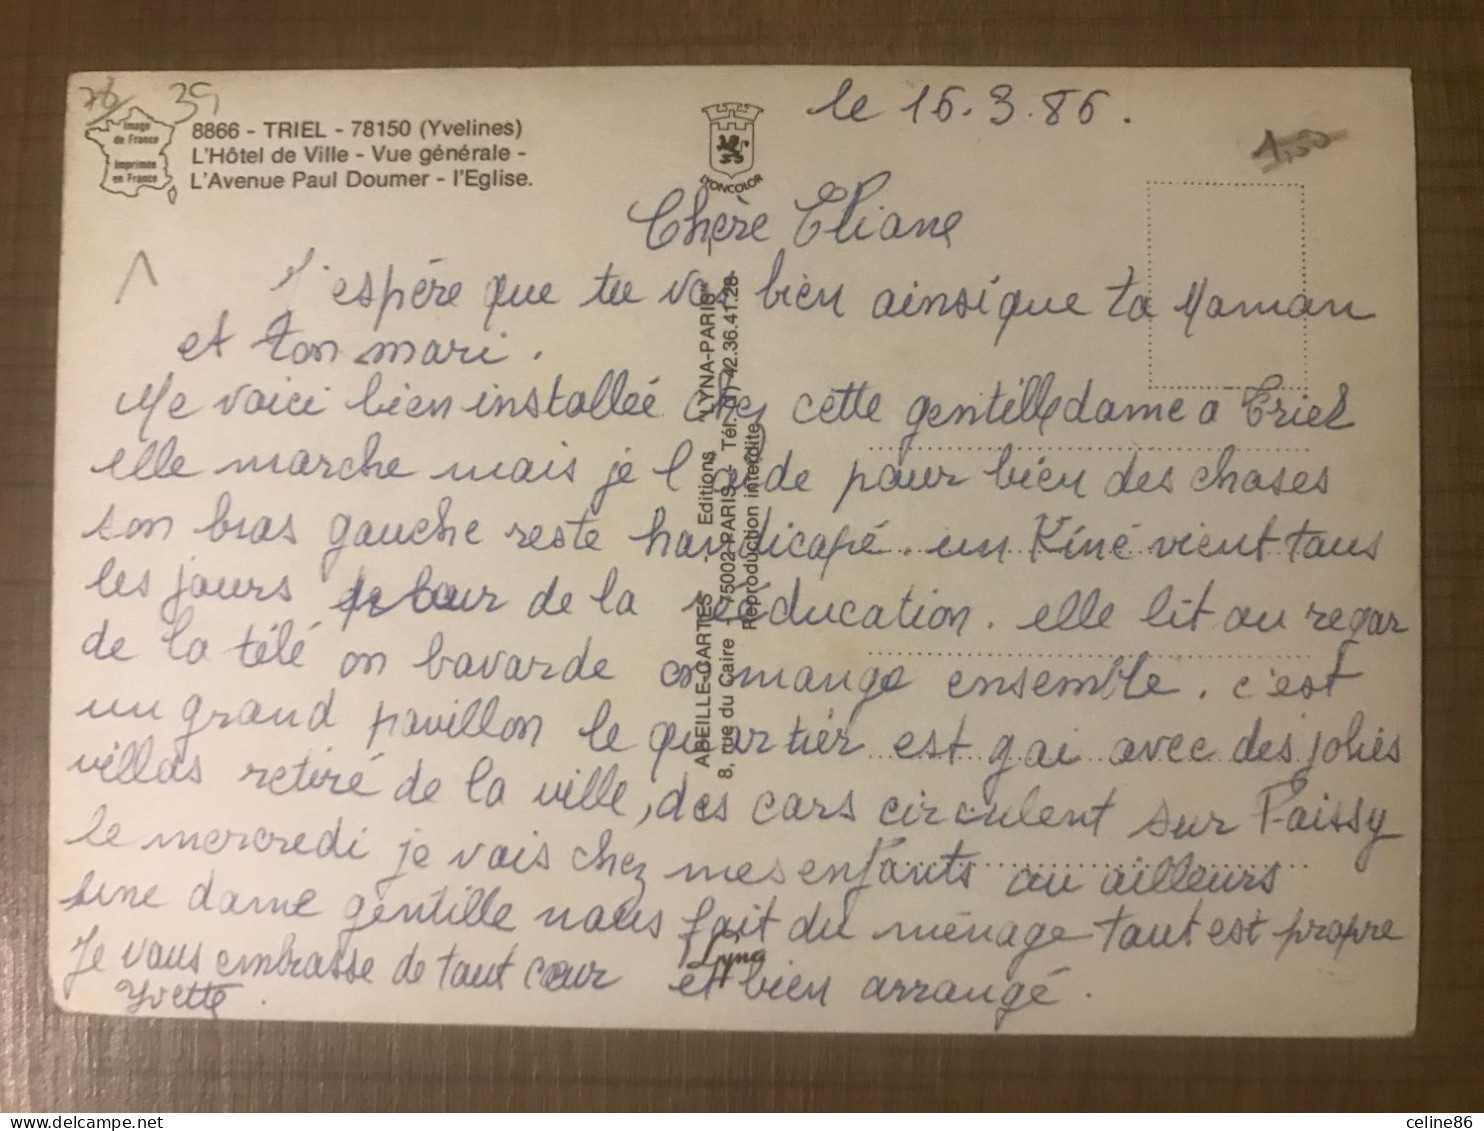 78 39
Image
de France
Imprimée
en France
8866 - TRIEL - 78150 (Yvelines)
L'Hôtel de Ville - Vue générale -
L'Avenue Paul Doumer - l'Eglise.
LYONCOLOR
le 16.3.86.
1,50
Chère Eliane
J'espère que tu vas bien ainsi que ta Maman
et ton mari.
Me voici bien installée chez cette gentille dame a Triel
elle marche mais je l'aide pour bien des choses
son bras gauche reste handicapé. un Kiné vient tous
les jours pour de la rééducation. elle lit ou regar
de la télé on bavarde on mange ensemble. c'est
un grand pavillon le quartier est gai avec des jolies
villas retiré de la ville, des cars circulent sur Poissy
le mercredi je vais chez mes enfants ou ailleurs
une dame gentille nous fait du ménage tout est propre
et bien arrangé.
Je vous embrasse de tout cœur
Yvette.
ABEILLE-CARTES - Editions "LYNA-PARIS"
8, rue du Caire - 75002 PARIS - Tél. (1) 42.36.41.28
Reproduction interdite
Lyna
celine86